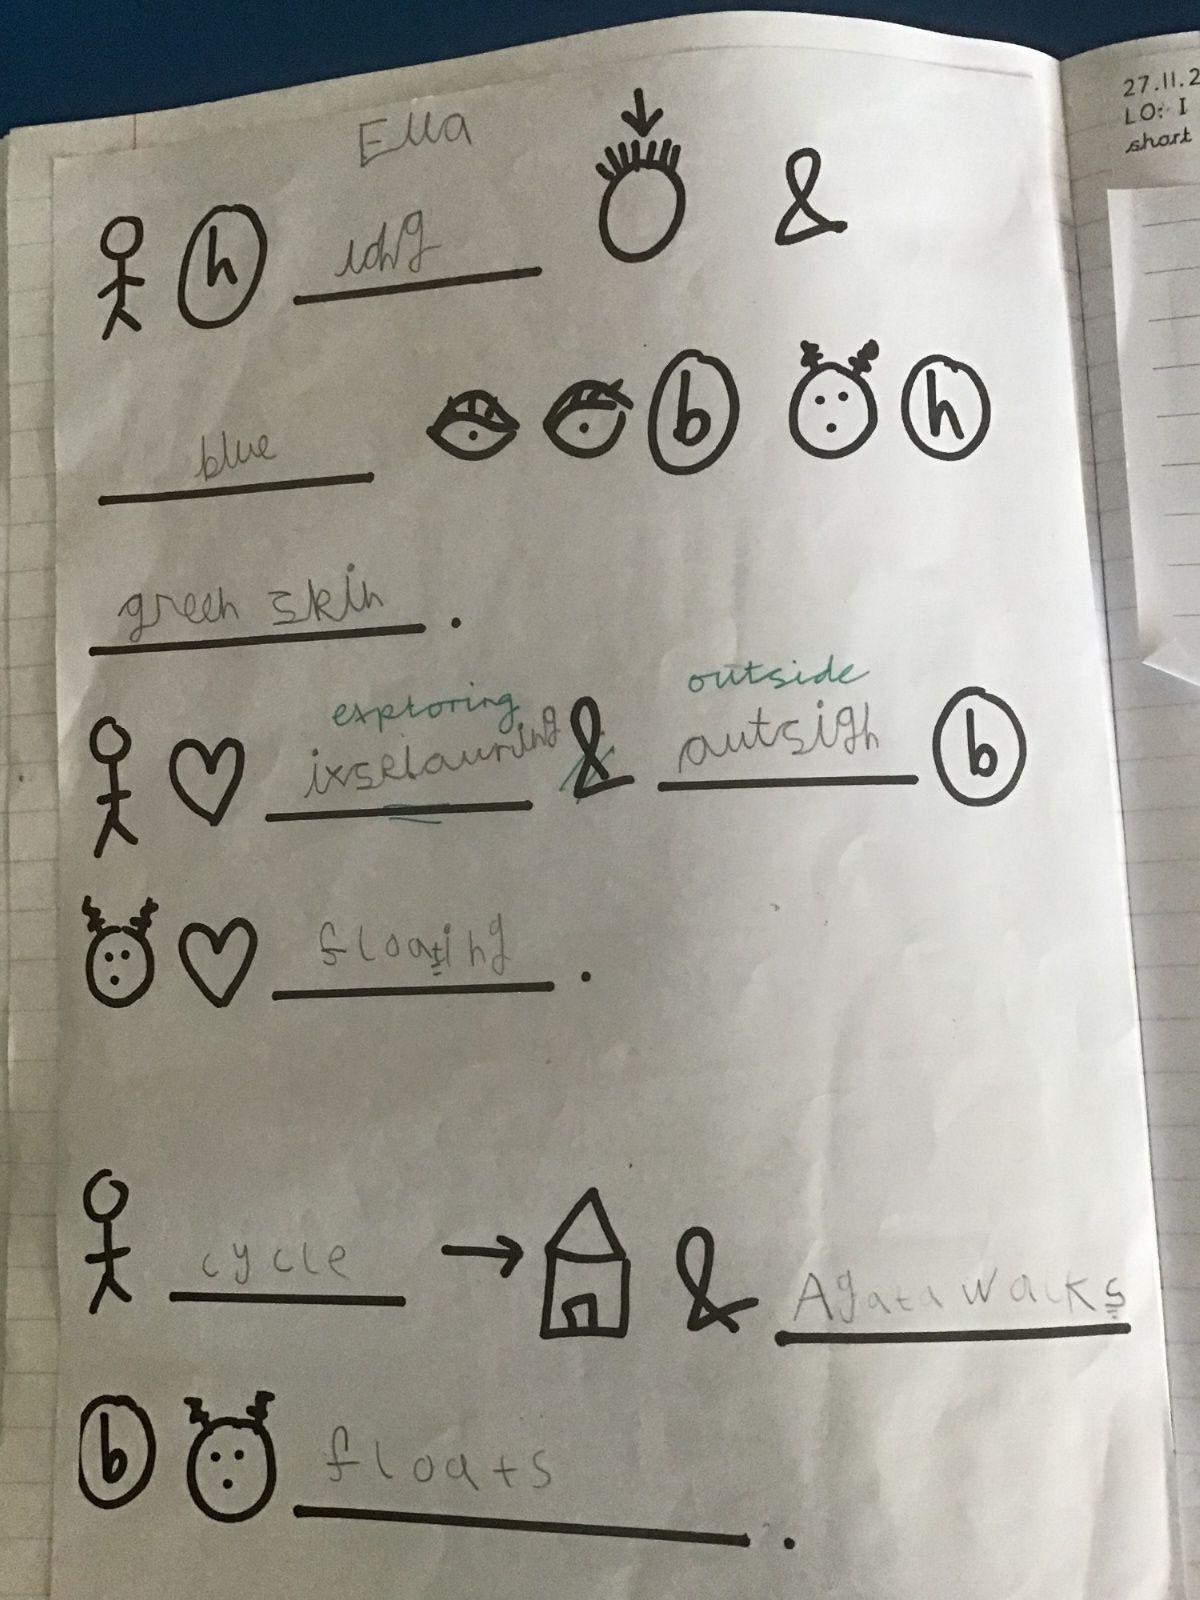 Ella
27.11.2
LO: I
short
h long &
blue b h
green skin .
exploring outside
ixselauring & autsigh b
floating .
cycle → & Agata walks
b floats .